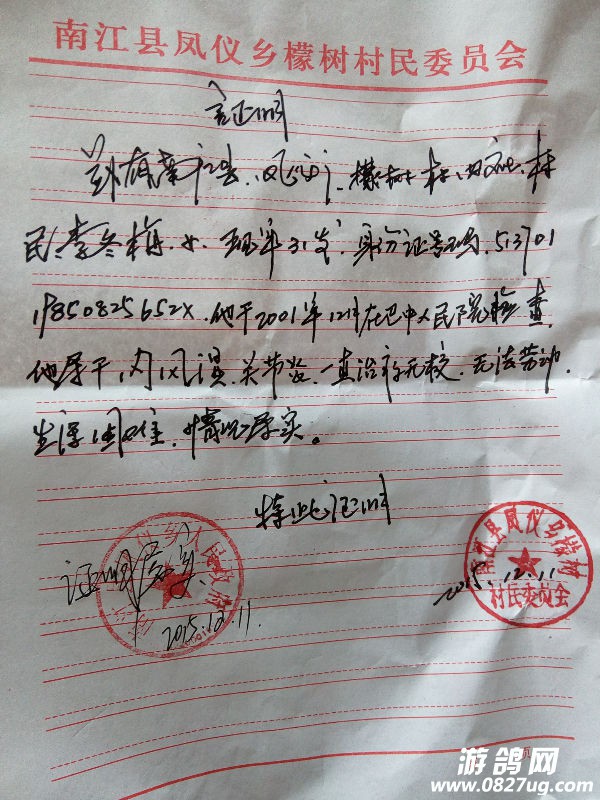 南江县凤仪乡檬树村民委员会
证明
兹有南江县、凤仪乡、檬树村、村
民、李冬梅、女、现年31岁、身份证号码、513701
19850825652X、他于2001年12月在巴中人民院检查
他属于、内风湿、关节炎、一直治疗无校、无法劳动、
生活困难、情况属实。
特此证明
证明属实
2015.12.11.
2015.12.11
南江县凤仪乡檬树村
村民委员会
游鸽网
www.0827ug.com